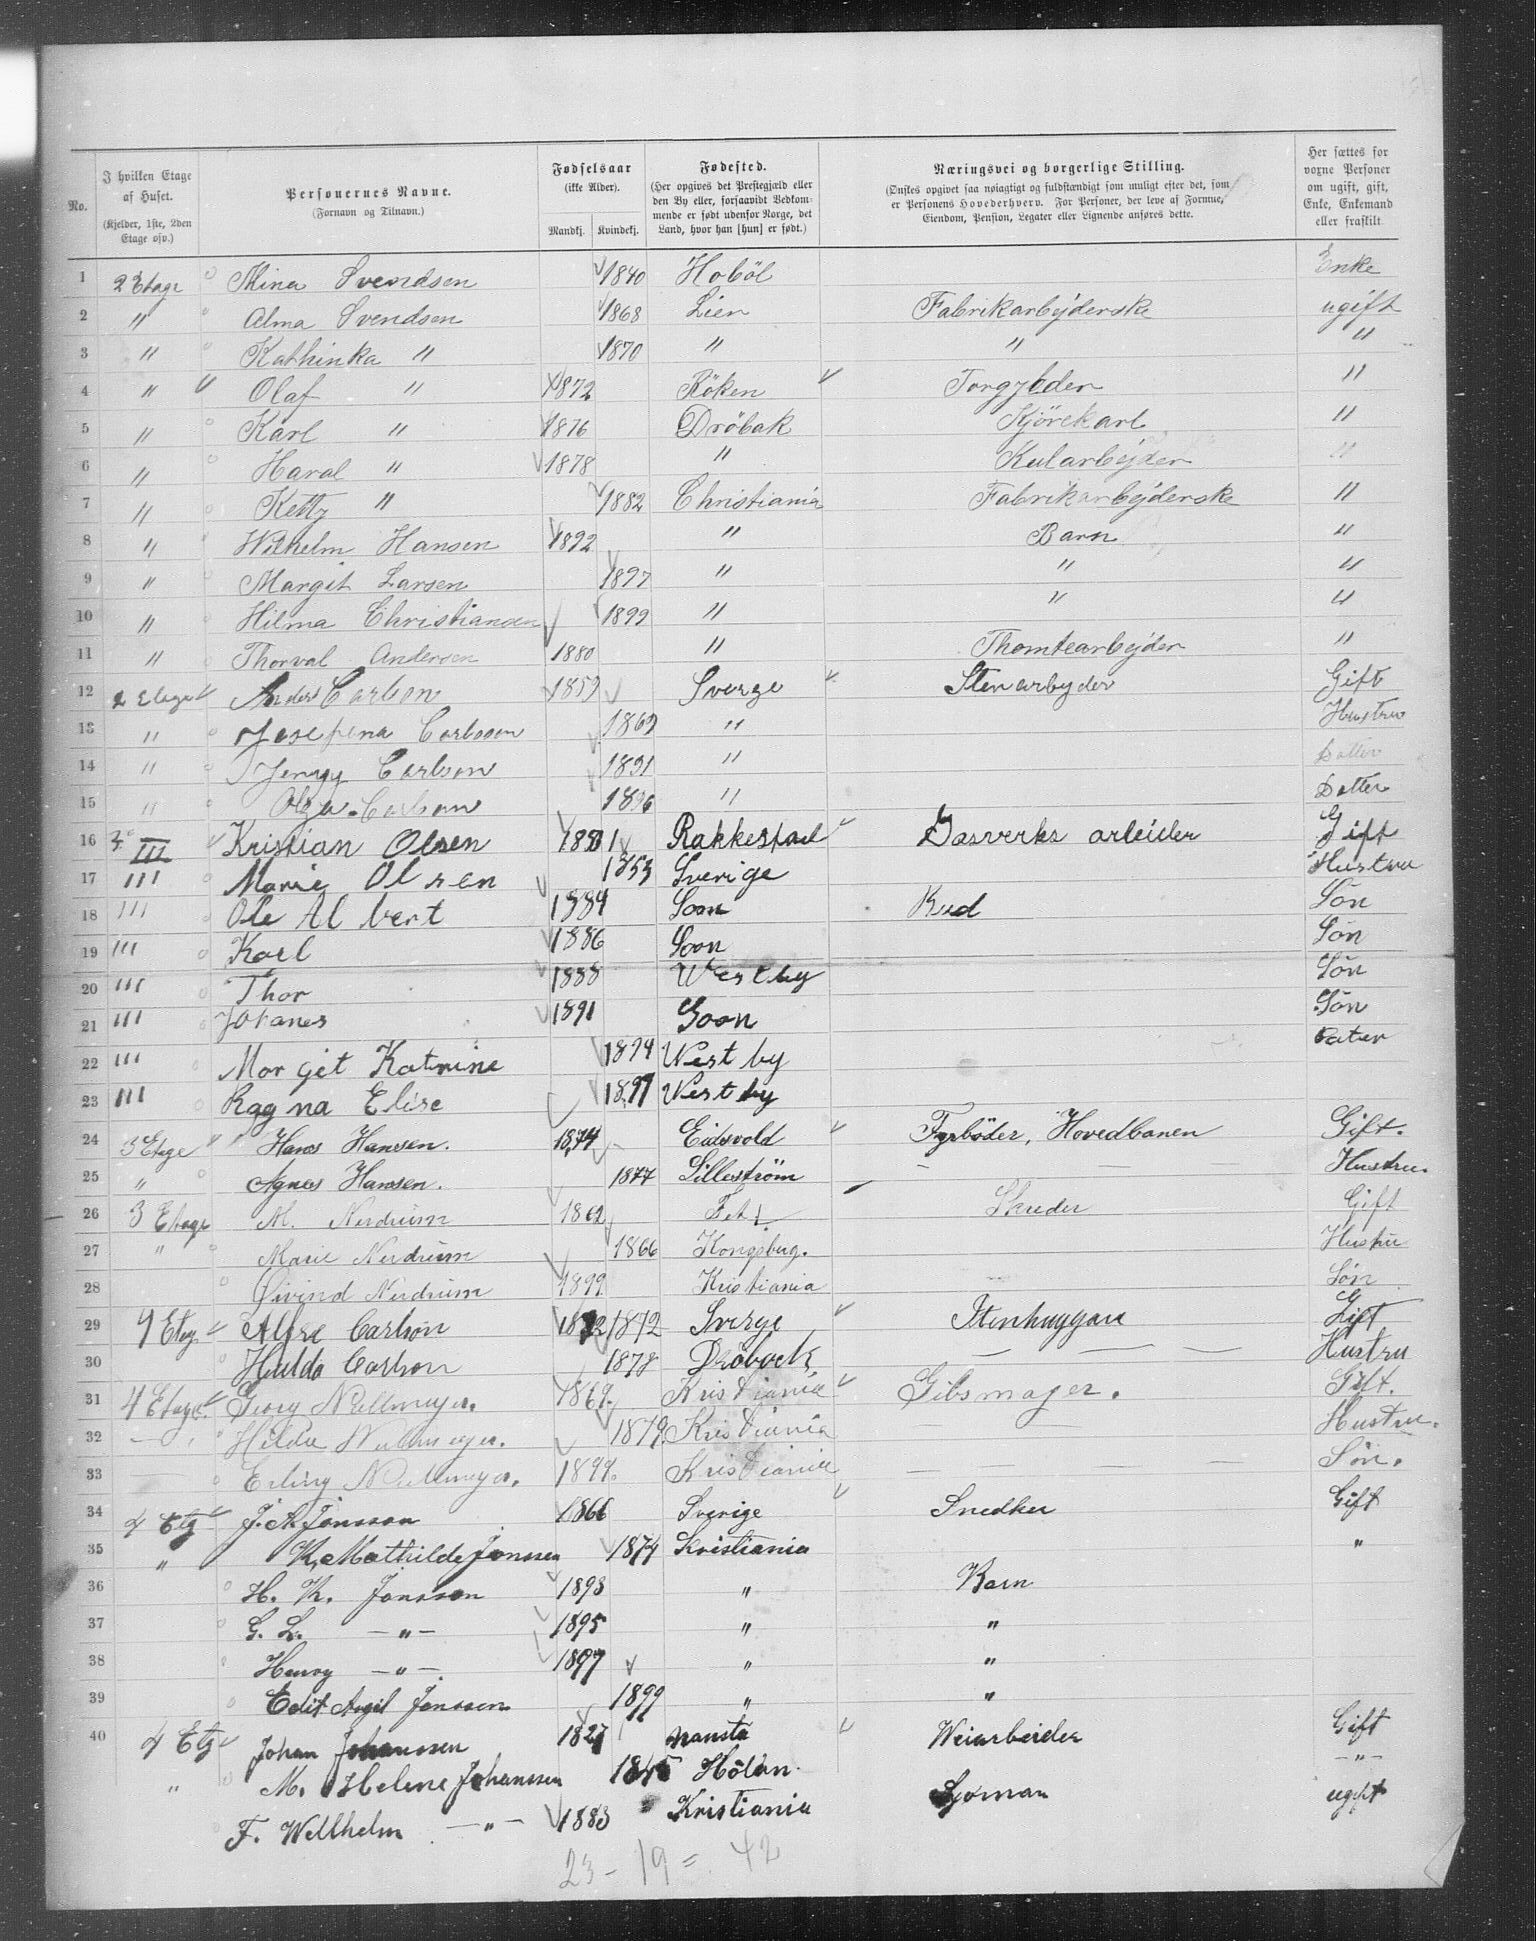 No. | I hvilken Etage af Huset. (Kjelder, 1ste, 2den Etage osv.) | Personernes Navne. (Fornavn og Tilnavn.) | Fødselsaar (ikke Alder). Mandkj. Kvindekj. | Fødested. (Her opgives det Prestegjæld eller den By eller, forsaavidt Vedkommende er født udenfor Norge, det Land, hvor han [hun] er født.) | Næringsvei og borgerlige Stilling. (Ønskes opgivet saa nøiagtigt og fuldstændigt som muligt efter det, som er Personens Hovederhverv. For Personer, der leve af Formue, Eiendom, Pension, Legater eller Lignende anføres dette. | Her sættes for voxne Personer om ugift, gift, Enke, Enkemand eller fraskilt.
1 2 Etage Mina Svendsen 1840 Hoböl Enke
2 " Alma Svendsen 1868 Lier Fabrikarbejderske ugift
3 " Kathinka " 1870 " " "
4 " Olaf " 1872 Röken "
5 " Karl " 1876 Dröbak Kjörekarl "
6 " Haral " 1878 " Kularbejder "
7 " Ketty " 1882 Christiania Fabrikarbejderske "
8 " Wilhelm Hansen 1892 " Barn "
9 " Margit Larsen 1897 " " "
10 " Hilma Christiansen 1899 " " "
11 " Thorval Andersen 1880 " Thomtearbejder "
12 2 Etage Anders Carlson 1859 Sverge Stenarbyder Gift
13 " Josefina Carlsson 1869 " Hustru
14 " Jenny Carlson 1891 " Datter
15 " Olga Carlson 1896 " Datter
16 III Kristian Olsen 1851 Rakkestad Gasverks arbeider Gift
17 III Marie Olsen 1853 Sverige Hustru
18 III Ole Albert 1884 Soon Bud Sön
19 III Karl 1886 Soon Sön
20 III Thor 1888 Westby Sön
21 III Johanes 1891 Soon Sön
22 III Morgit Katrine 1894 Westby
23 III Ragna Elise 1897 Westby
24 3 Etage Hans Hansen. 1874 Eidsvold Fyrböder, Hovedbanen Gift.
25 " Agnes Hansen. 1877 Lilleström — — — Hustru.
26 3 Etage M. Nerdrum 1862 Fet Skreder Gift
27 " Marie Nerdrum 1866 Kongsberg. Hustru
28 Öivind Nerdrum 1899 Kristiania Sön
29 4 Etag. Alfre Carlson 1872 1872 Sverge Stenhuggare Gift
30 Hulda Carlson 1878 Dröback — — — Hustru
31 4 Etage. Georg 1869. Kristiania Gibsmager. Gift.
32 — " Hilda 1879. Kristiania Hustru.
33 — Erling 1899. Kristiania — — — Sön.
34 4 Etg J. A. Jonsson 1866 Sverige Snedker Gift
35 " K. Mathilde Jonssen 1874 Kristiania "
36 H. K. Jonsson 1893 " Barn
37 G. L. —"— 1895 " "
38 Henry —"— 1897 " "
39 Edit Jonssen 1899 " "
40 4 Etg Johan Johanssen 1827 Weiarbeider Gift
" M. Helene Johanssen 1845 Hölan —"—
F. Wellhelm —"— 1883 Kristiania Sjoman ugift
23 – 19 = 42